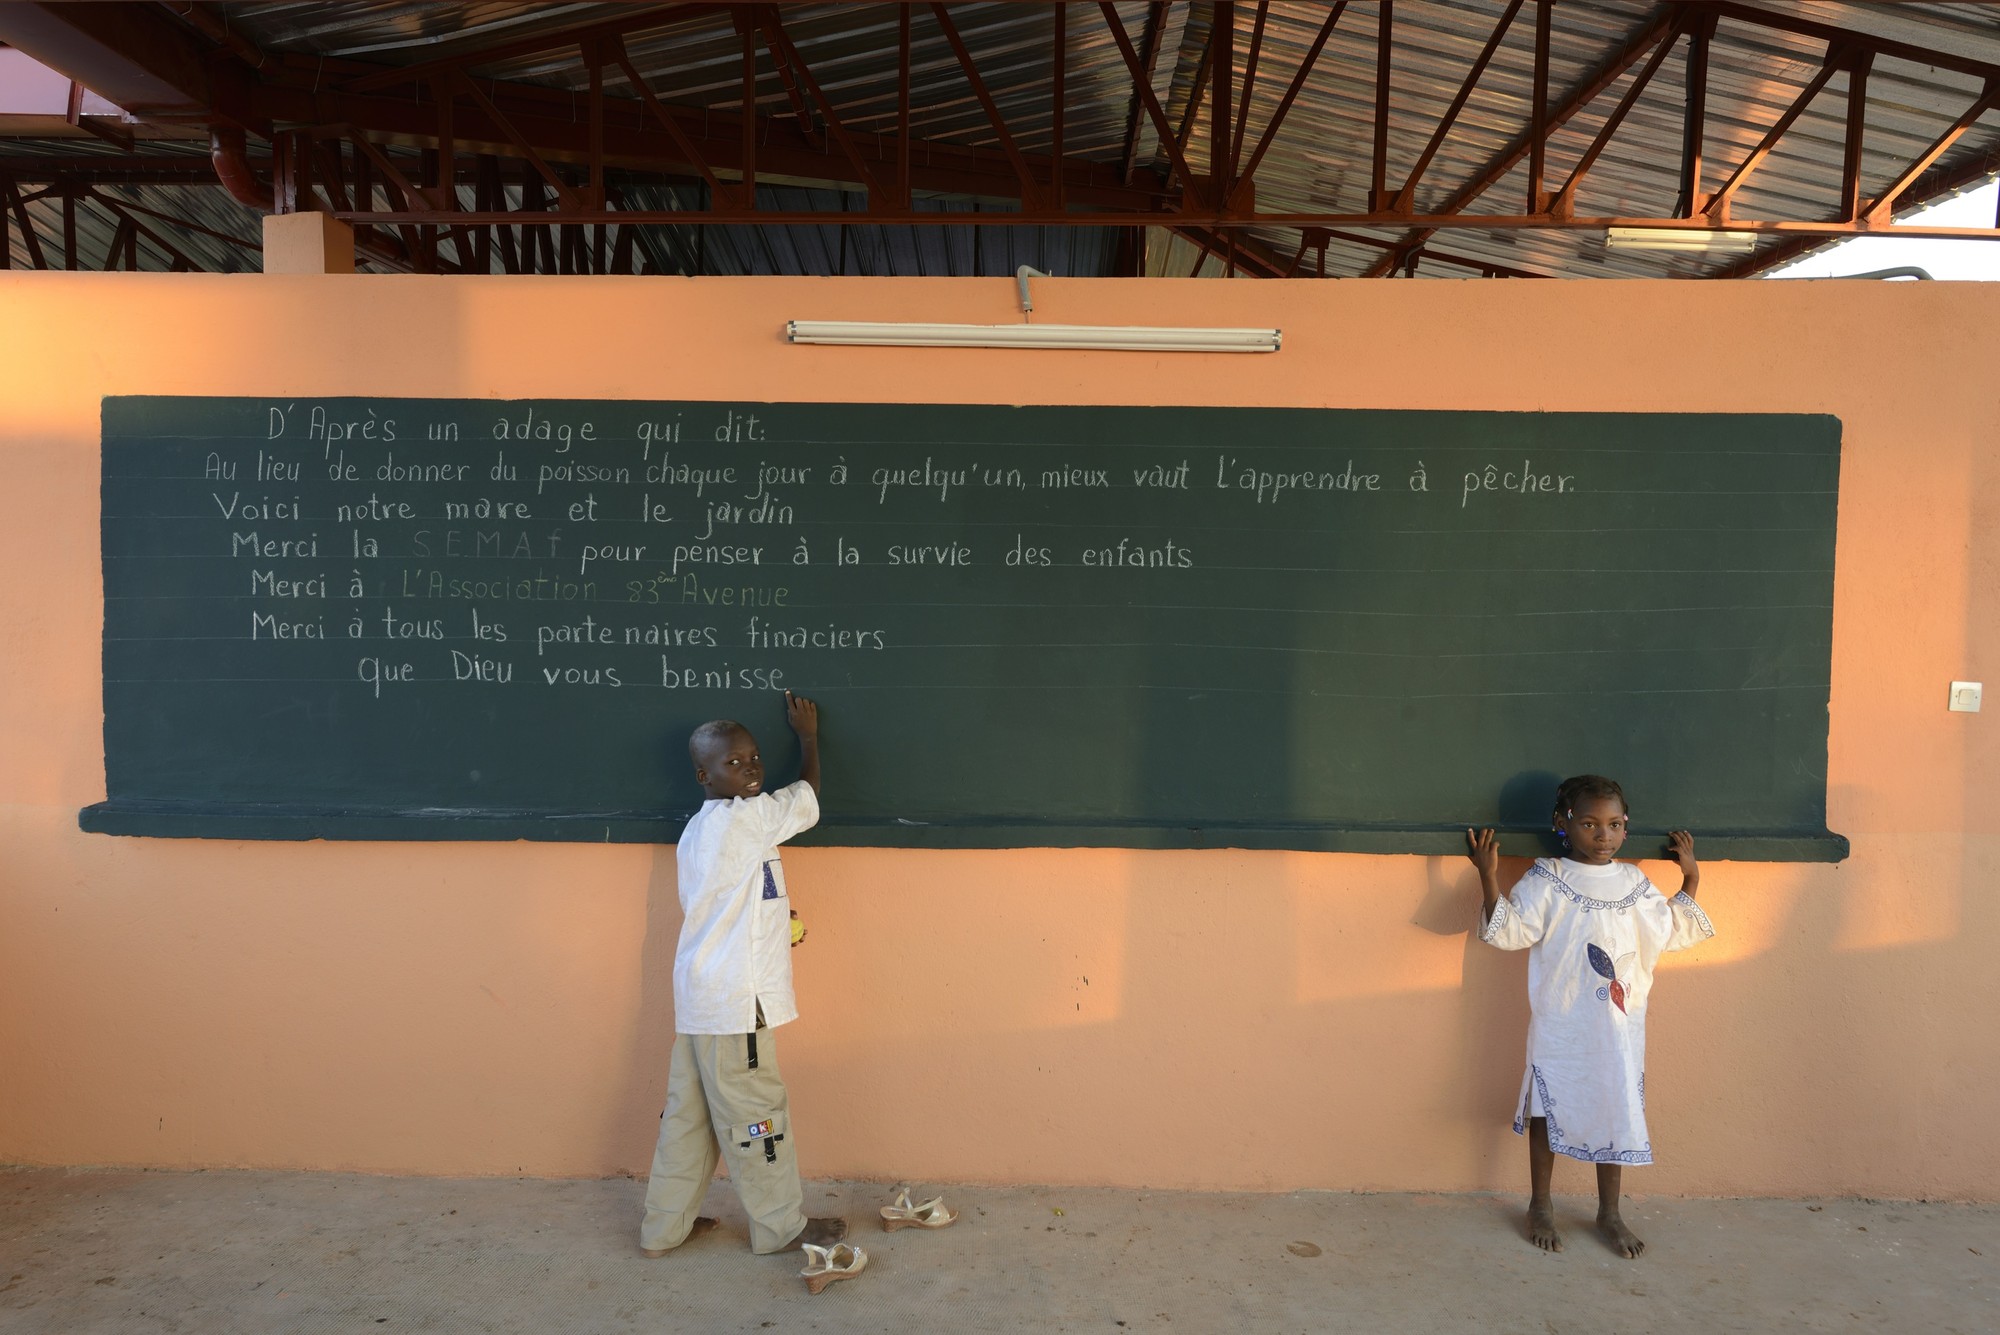 D'Après un adage qui dit:
Au lieu de donner du poisson chaque jour à quelqu'un, mieux vaut L'apprendre à pêcher.
Voici notre mare et le jardin
Merci la SEMAf pour penser à la survie des enfants
Merci à L'Association 83ème Avenue
Merci à tous les partenaires finaciers
que Dieu vous benisse
OK!